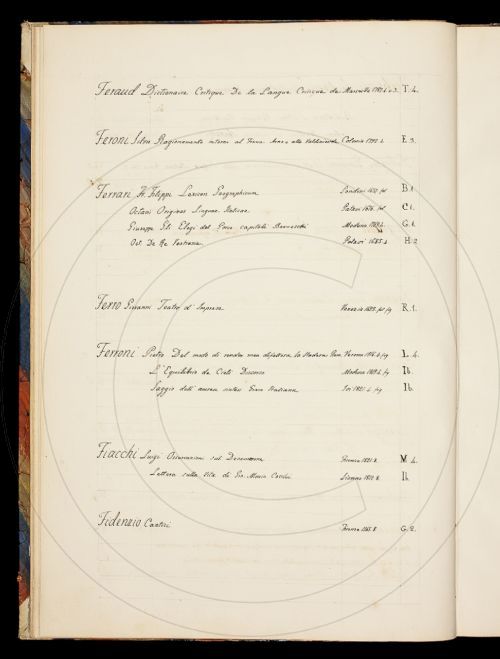 Feraud Dictionaire Critique De la Langue Critique de Marseille 1787. 4. v.3. T. 4.
Feroni Silva Ragionamento intorno al Fiume Arno e alla Valdinievole Colonia 1772. 4. E. 3.
Ferrari Fr. Filippi Lexicon Geographicum Londini 1657. fol. B. 1.
Octavi Origines Linguae Italicae Patavi 1676. fol. C. 1.
Giuseppe Gli Elogi del Porco capitoli Berneschi Modena G. 1.
Oct. De Re Vestiaria Patavi 1685. 4. H. 2
Ferro Giovanni Teatro d'Imprese Venezia fol. fig R. 1.
Ferroni Pietro Del modo di render men difettosa la Verona fig L. 4.
L'Equilibrio de Cieli Discorso Modena fig Ib.
Saggio dell' 1821. 4. fig Ib.
Fiacchi Luigi Osservazioni sul Decamerone Firenze 1821. 8. M. 4.
Lettera sulla Vita di Gio. Maria Cecchi Livorno 8. Ib.
Fidenzio Cantici Firenze 8 G. 2.